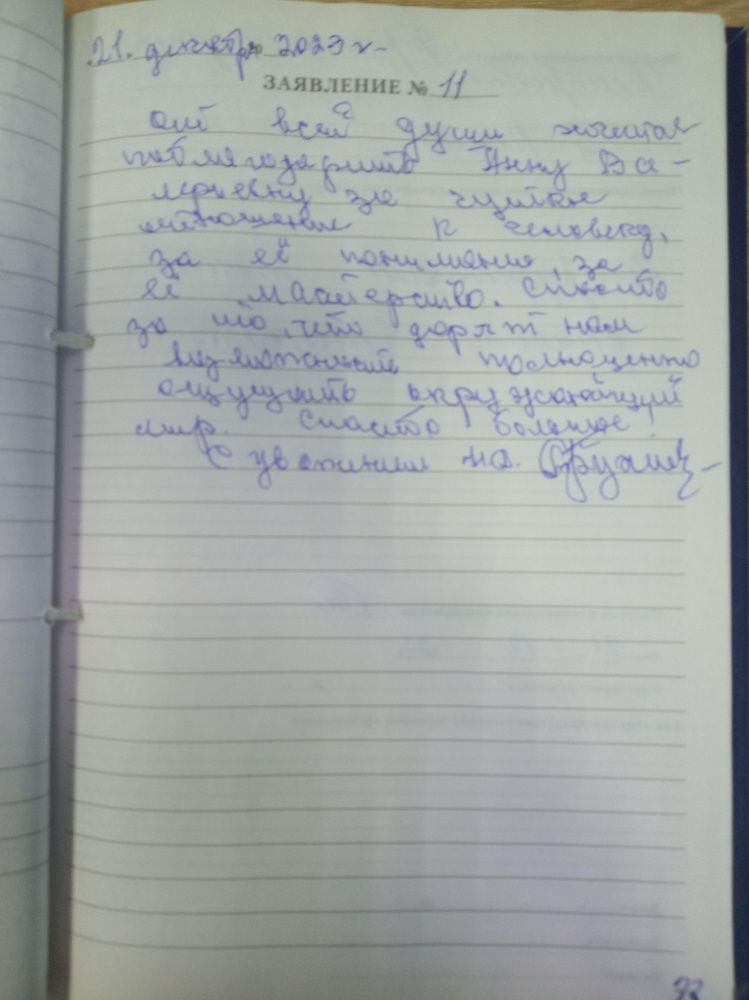 21. декабря 2023 г.
ЗАЯВЛЕНИЕ № 11
От всей души хочется
поблагодарить Анну Ва-
лерьевну за чуткое
отношение к человеку,
за её понимание, за
её мастерство. Спасибо
за то, что дарят нам
возможность полноценно
ощущать окружающий
мир. Спасибо большое!
С уважением